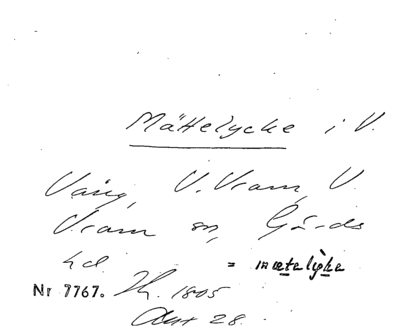 Mättelycke i V.
Vång, V. Vram, V.
Vram sn, Gärds
hd. = mætelyke
Nr 7767. 1805
Akt 28.